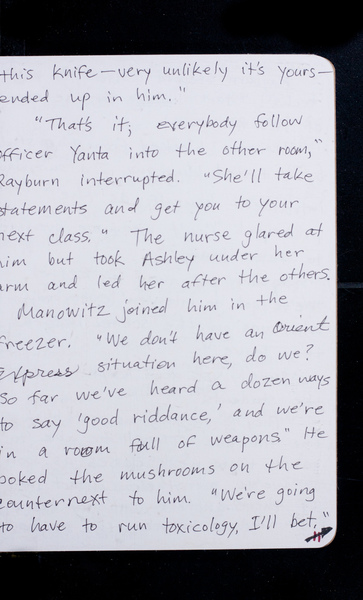 this knife—very unlikely it's yours—
ended up in him."
"That's it; everybody follow
officer Yanta into the other room,"
Rayburn interrupted. "She'll take
statements and get you to your
next class." The nurse glared at
him but took Ashley under her
arm and led her after the others.
Manowitz joined him in the
freezer. "We don't have an Orient
Express situation here, do we?
So far we've heard a dozen ways
to say 'good riddance,' and we're
in a room full of weapons." He
poked the mushrooms on the
counter next to him. "We're going
to have to run toxicology, I'll bet."